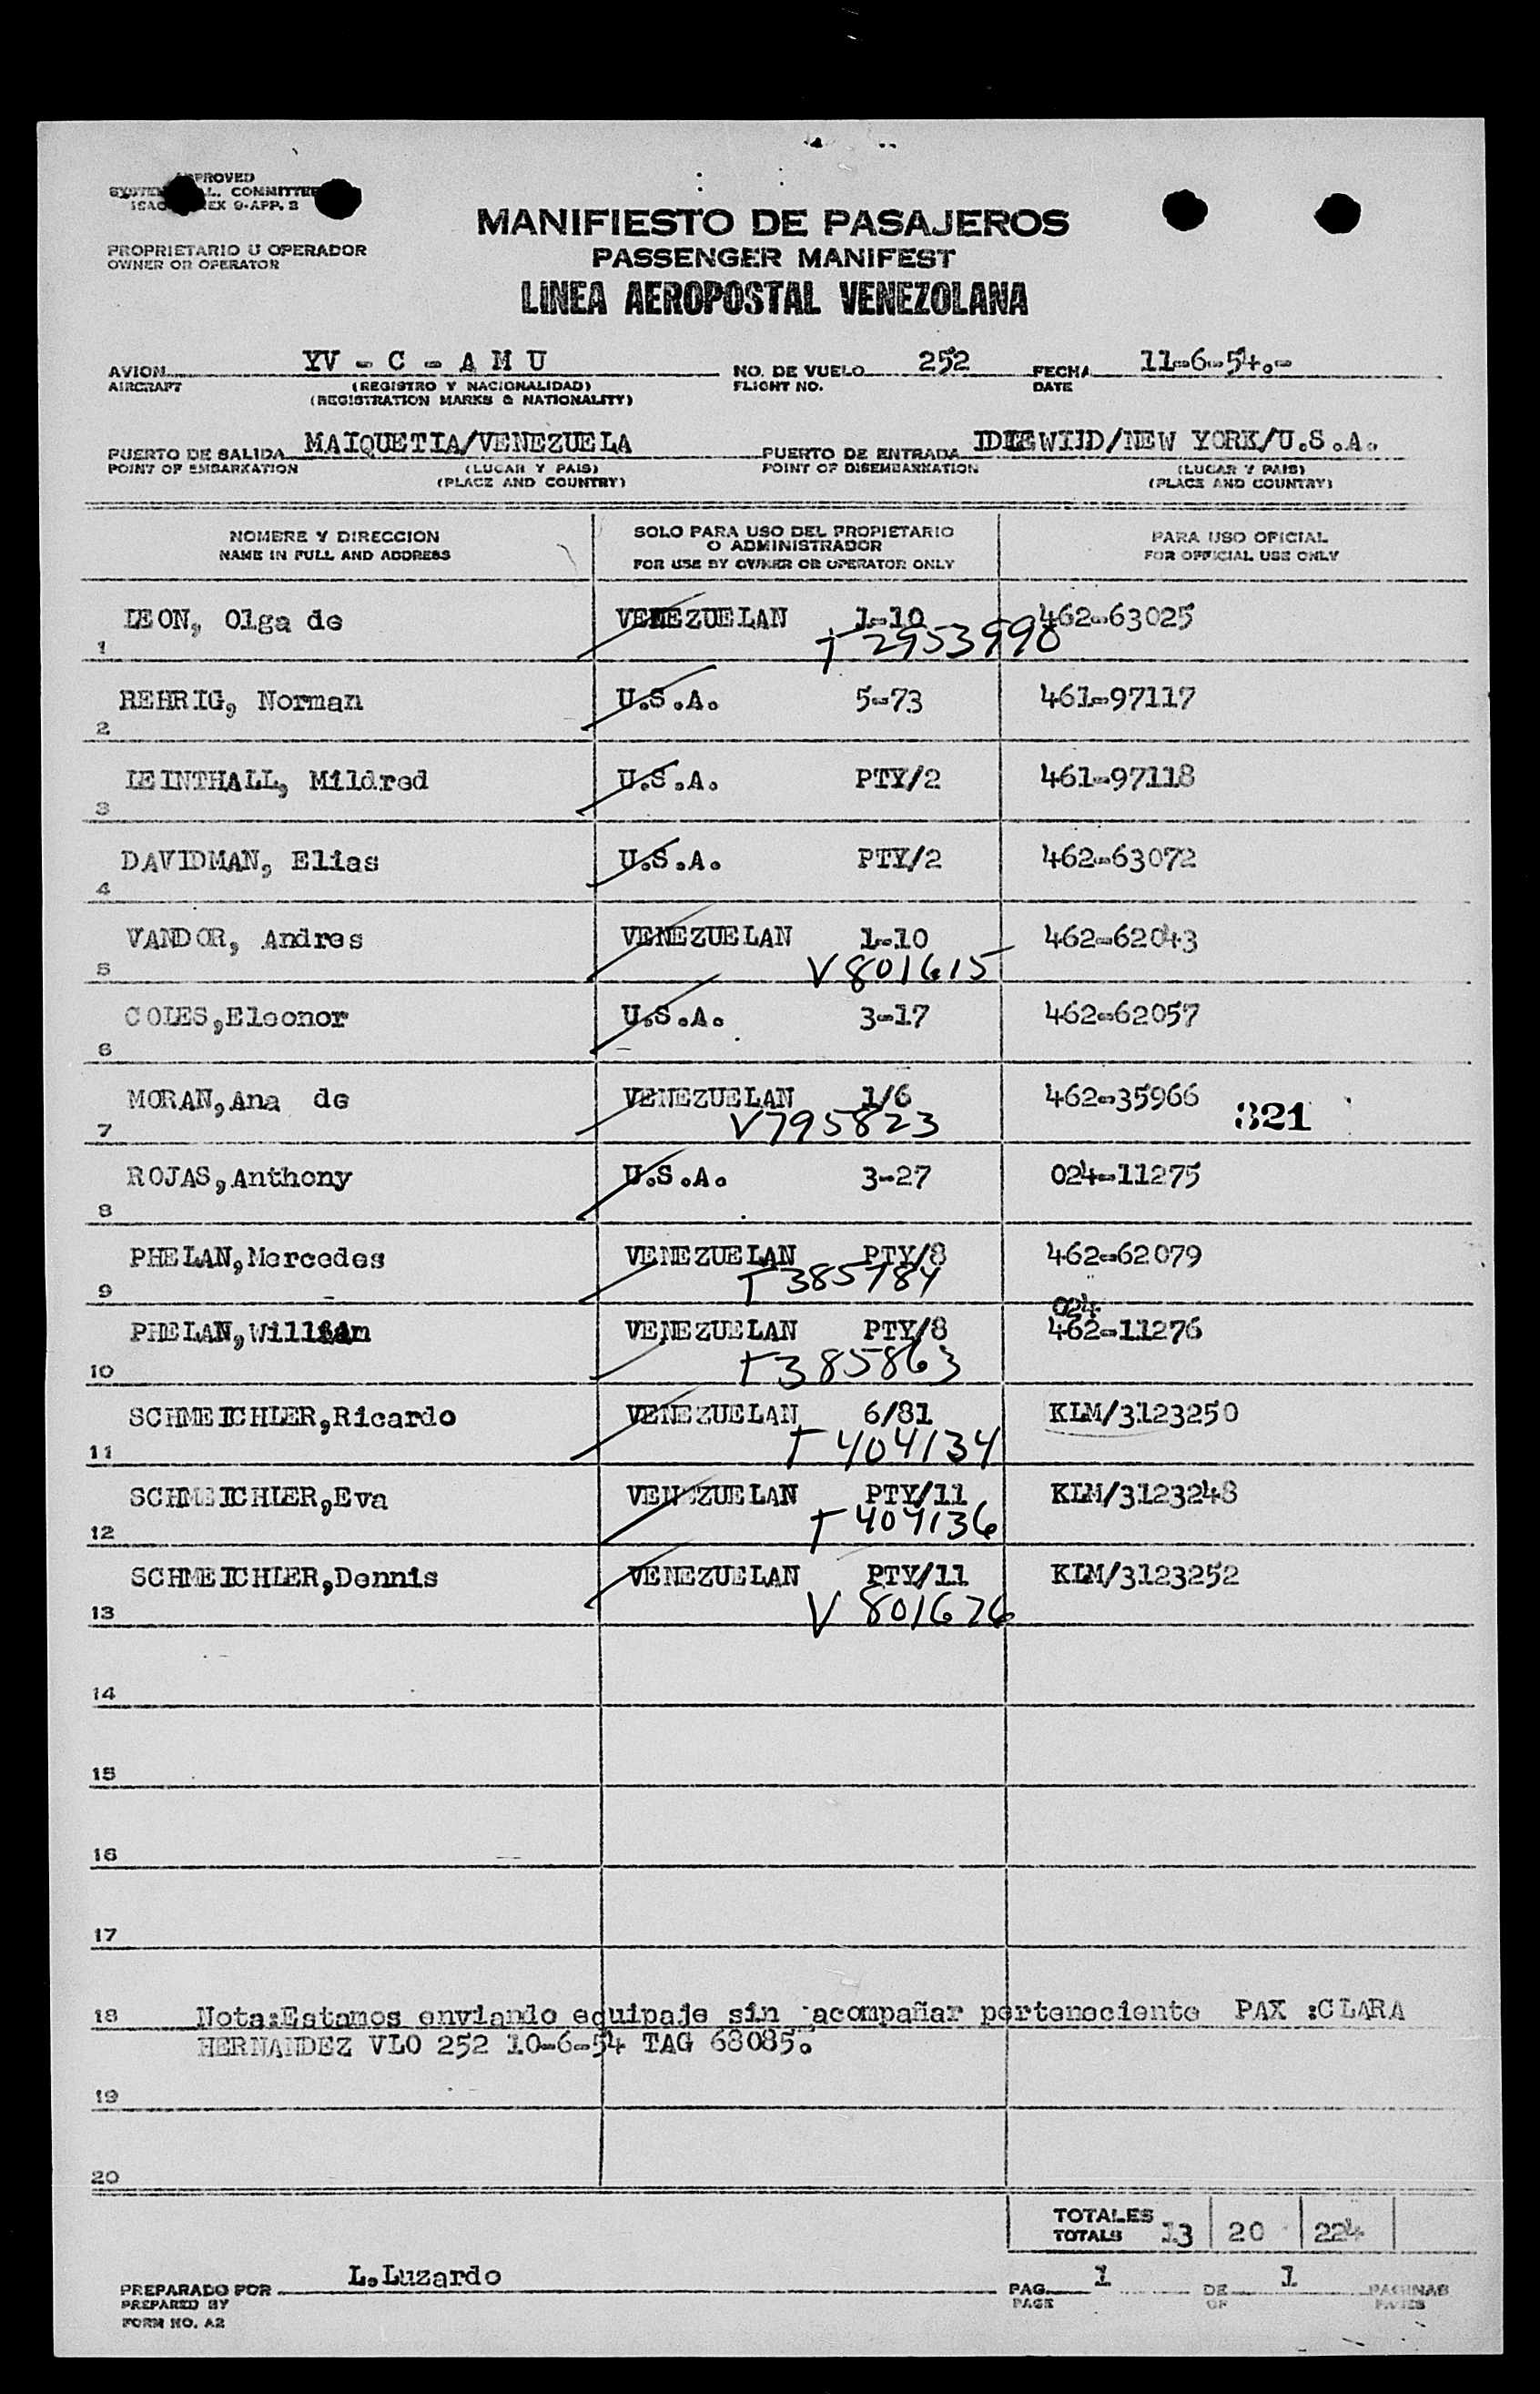 APPROVED
COMMITTEE
9-APP. 3
MANIFIESTO DE PASAJEROS
PROPRIETARIO U OPERADOR
OWNER OR OPERATOR
PASSENGER MANIFEST
LINEA AEROPOSTAL VENEZOLANA
AVION YV - C - A M U NO. DE VUELO 252 FECHA 11-6-54.-
AIRCRAFT (REGISTRO Y NACIONALIDAD) FLIGHT NO. DATE
(REGISTRATION MARKS & NATIONALITY)
PUERTO DE SALIDA MAIQUETIA/VENEZUELA PUERTO DE ENTRADA IDLEWILD/NEW YORK/U.S.A.
POINT OF EMBARKATION (LUGAR Y PAIS) POINT OF DISEMBARKATION (LUGAR Y PAIS)
(PLACE AND COUNTRY) (PLACE AND COUNTRY)
NOMBRE Y DIRECCION SOLO PARA USO DEL PROPIETARIO PARA USO OFICIAL
NAME IN FULL AND ADDRESS O ADMINISTRADOR FOR OFFICIAL USE ONLY
FOR USE BY OWNER OR OPERATOR ONLY
LEON, Olga de VENEZUELAN 1-10 462-63025
1 T 2953990
REHRIG, Norman U.S.A. 5-73 461-97117
2
LEINTHALL, Mildred U.S.A. PTY/2 461-97118
3
DAVIDMAN, Elias U.S.A. PTY/2 462-63072
4
VANDOR, Andres VENEZUELAN 1-10 462-62043
5 V 801615
COLES,Eleonor U.S.A. 3-17 462-62057
6
MORAN,Ana de VENEZUELAN 1/6 462-35966
7 V795823 321
ROJAS,Anthony U.S.A. 3-27 024-11275
8
PHELAN,Mercedes VENEZUELAN PTY/8 462-62079
9 T 385784
024
PHELAN,William VENEZUELAN PTY/8 462-11276
10 T385863
SCHMEICHLER,Ricardo VENEZUELAN 6/81 KLM/3123250
11 T 404134
SCHMEICHLER,Eva VENEZUELAN PTY/11 KLM/3123248
12 T 404136
SCHMEICHLER,Dennis VENEZUELAN PTY/11 KLM/3123252
13 V 801626
14
15
16
17
18 Nota:Estamos enviando equipaje sin acompañar perteneciente PAX :CLARA
HERNANDEZ VLO 252 10-6-54 TAG 68085.
19
20
TOTALES
TOTALS 13 20 224
PREPARADO POR L.Luzardo PAG. 1 DE 1 PAGINAS
PREPARED BY PAGE OF PAGES
FORM NO. A2